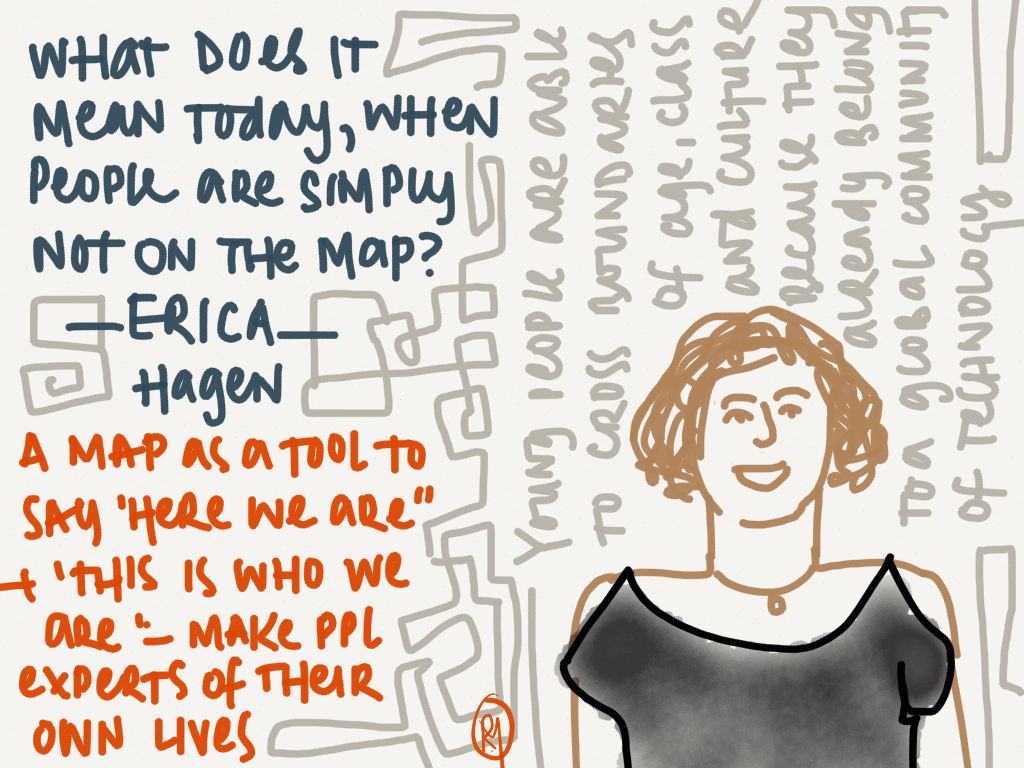 WHAT DOES IT
MEAN TODAY, WHEN
PEOPLE ARE SIMPLY
NOT ON THE MAP?
—ERICA—
HAGEN
A MAP AS A TOOL TO
SAY 'HERE WE ARE"
+ 'THIS IS WHO WE
ARE "— MAKE PPL
EXPERTS OF THEIR
OWN LIVES
YOUNG PEOPLE ARE ABLE
TO CROSS BOUNDARIES
OF AGE, CLASS
AND CULTURE
BECAUSE THEY
ALREADY BELONG
TO A GLOBAL COMMUNITY
OF TECHNOLOGY
RM